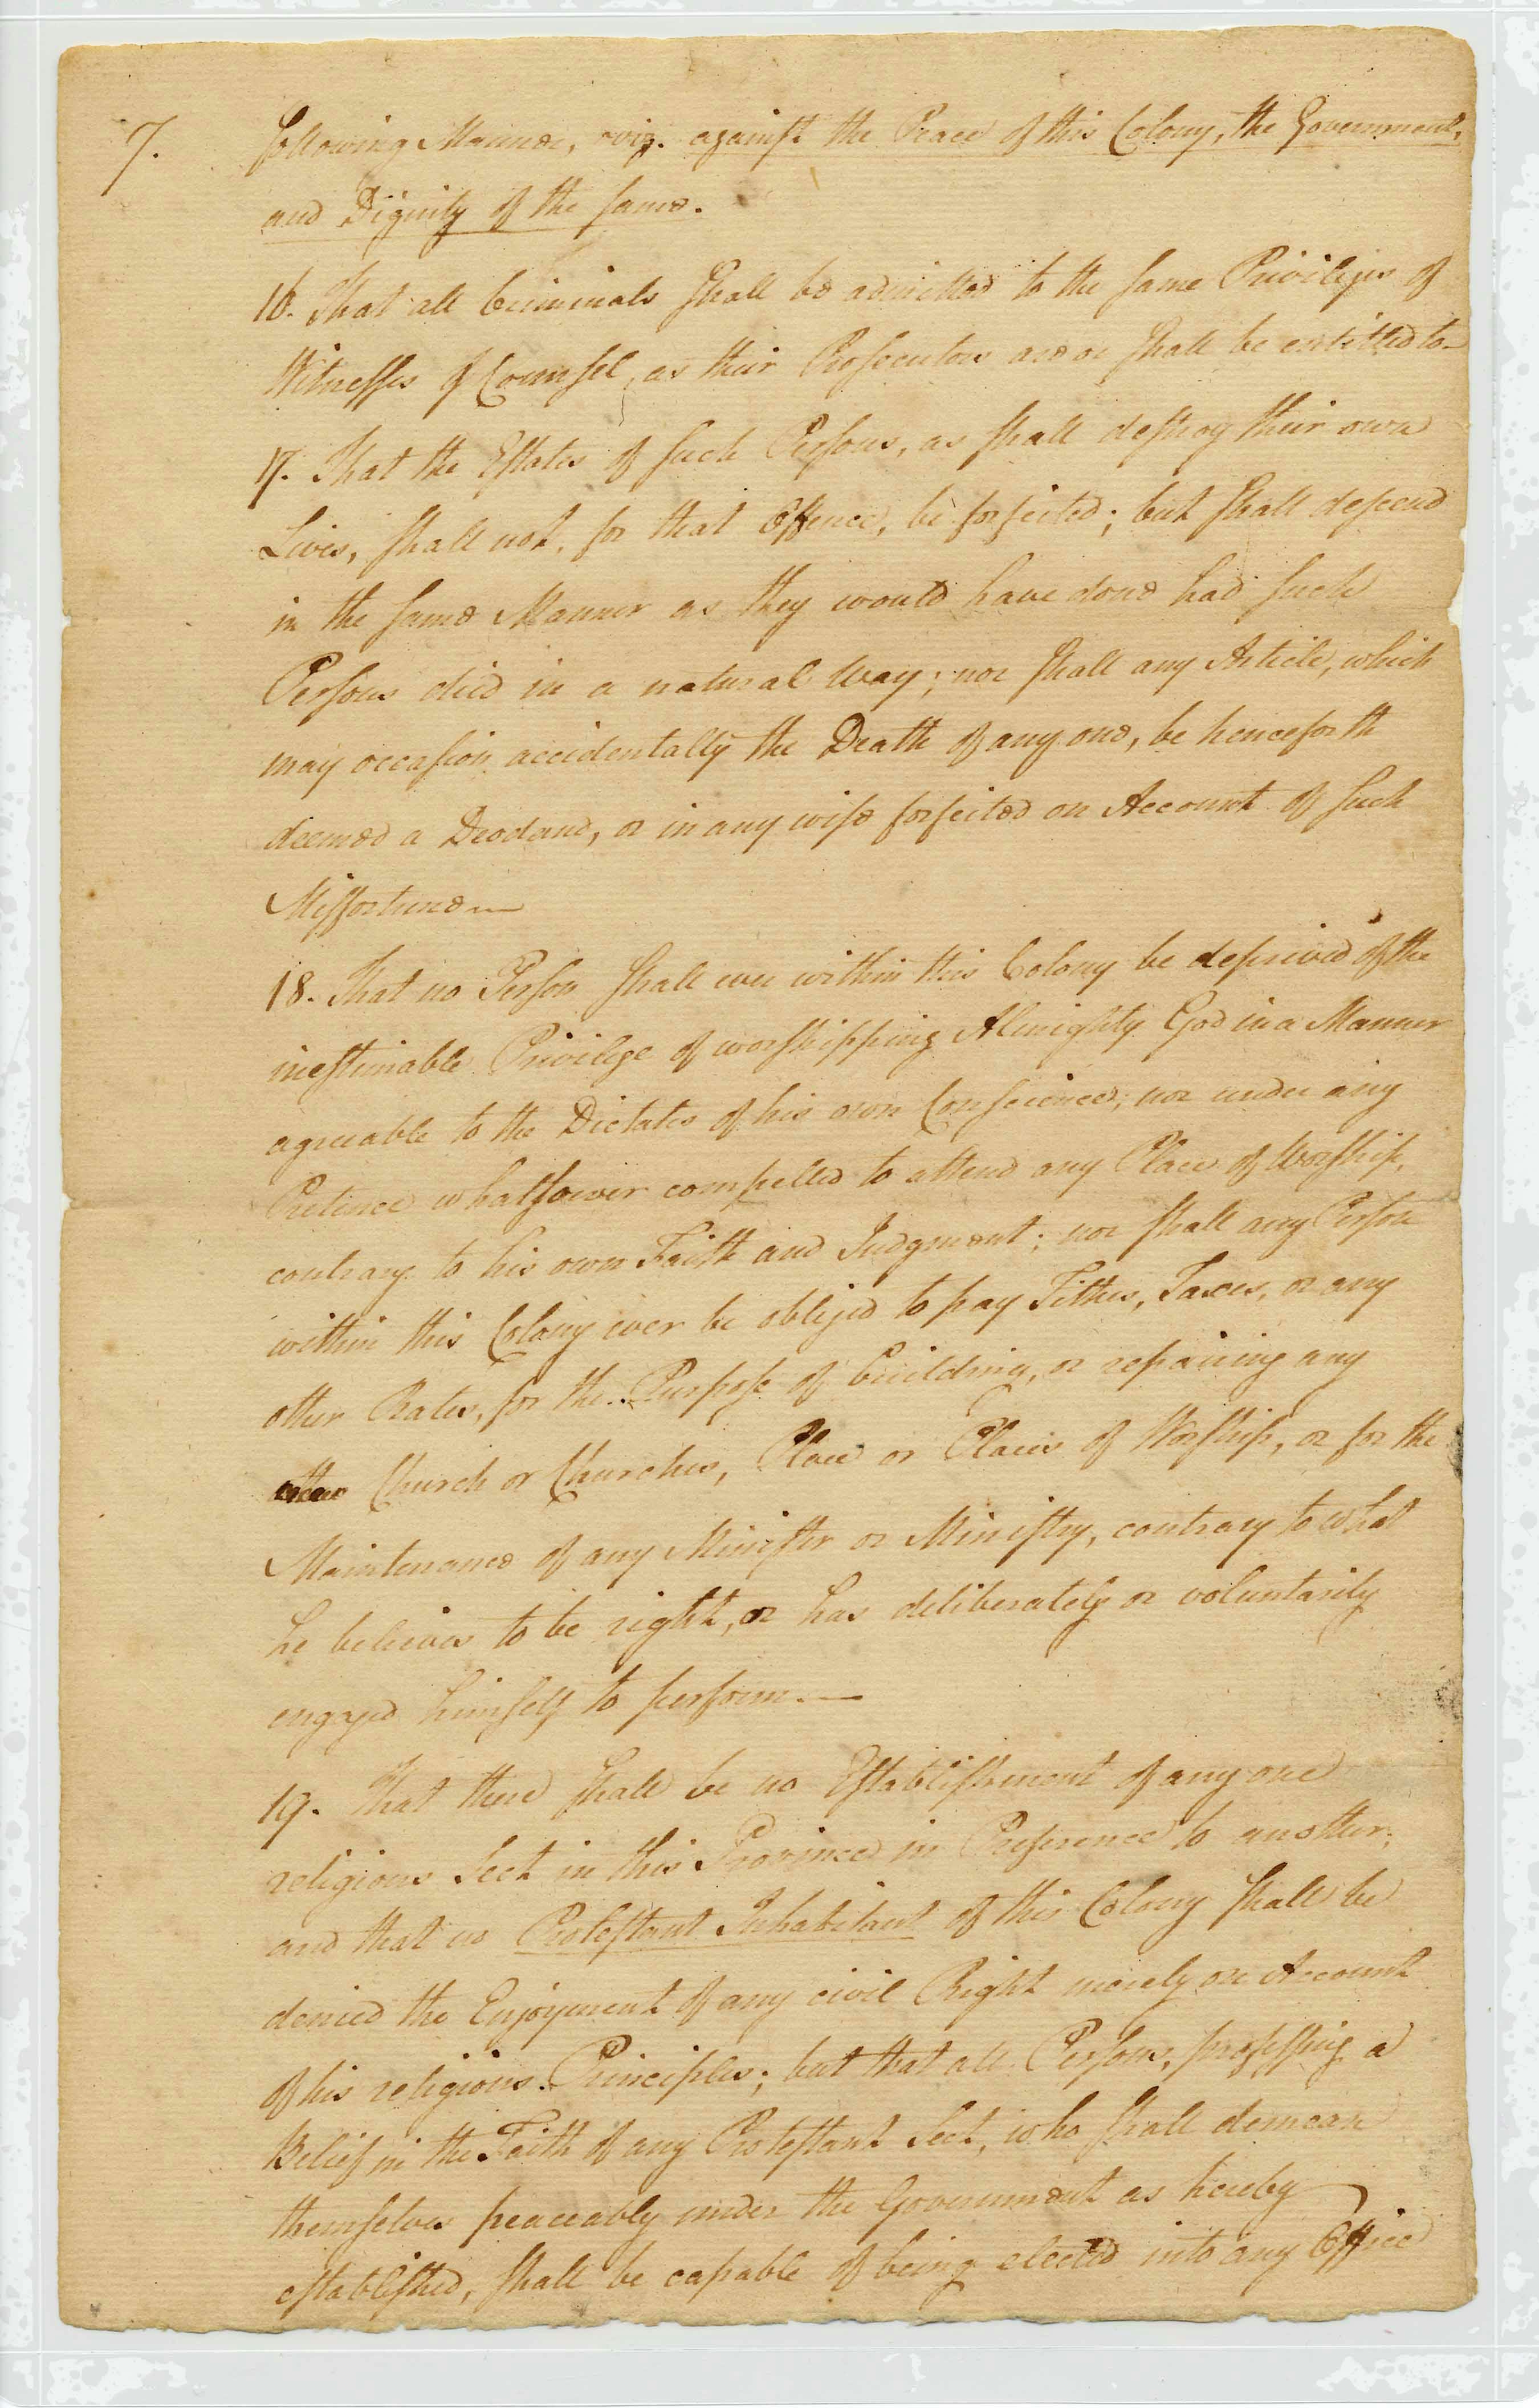 7.
following Manner, viz. against the Peace of this Colony, the Government,
and Dignity of the same.
16. That all Criminals shall be admitted to the same Privileges of
Witnesses & Counsel, as their Prosecutors are or shall be entitled to—
17. That the Estates of such Persons, as shall destroy their own
Lives, shall not, for that Offence, be forfeited; but shall descend
in the same Manner as they would have done had such
Persons died in a natural Way; nor shall any Article, which
may occasion accidentally the Death of any one, be henceforth
deemed a Deodand, or in any wise forfeited on Account of such
Misfortune—
18. That no Person shall ever within this Colony be deprived of the
inestimable Privilege of worshipping Almighty God in a Manner
agreeable to the Dictates of his own Conscience; nor under any
Pretence whatsoever compelled to attend any Place of Worship,
contrary to his own Faith and Judgment; nor shall any Person
within this Colony ever be obliged to pay Tithes, Taxes, or any
other Rates, for the Purpose of building, or repairing any
Church or Churches, Place or Places of Worship, or for the
Maintenance of any Minister or Ministry, contrary to what
he believes to be right, or has deliberately or voluntarily
engaged himself to perform.—
19. That there shall be no Establishment of any one
religious Sect in this Province in Preference to another;
and that no Protestant Inhabitant of this Colony shall be
denied the Enjoyment of any civil Right merely on Account
of his religious Principles; but that all Persons, professing a
Belief in the Faith of any Protestant Sect, who shall demean
themselves peaceably under the Government as hereby
established, shall be capable of being elected into any Office